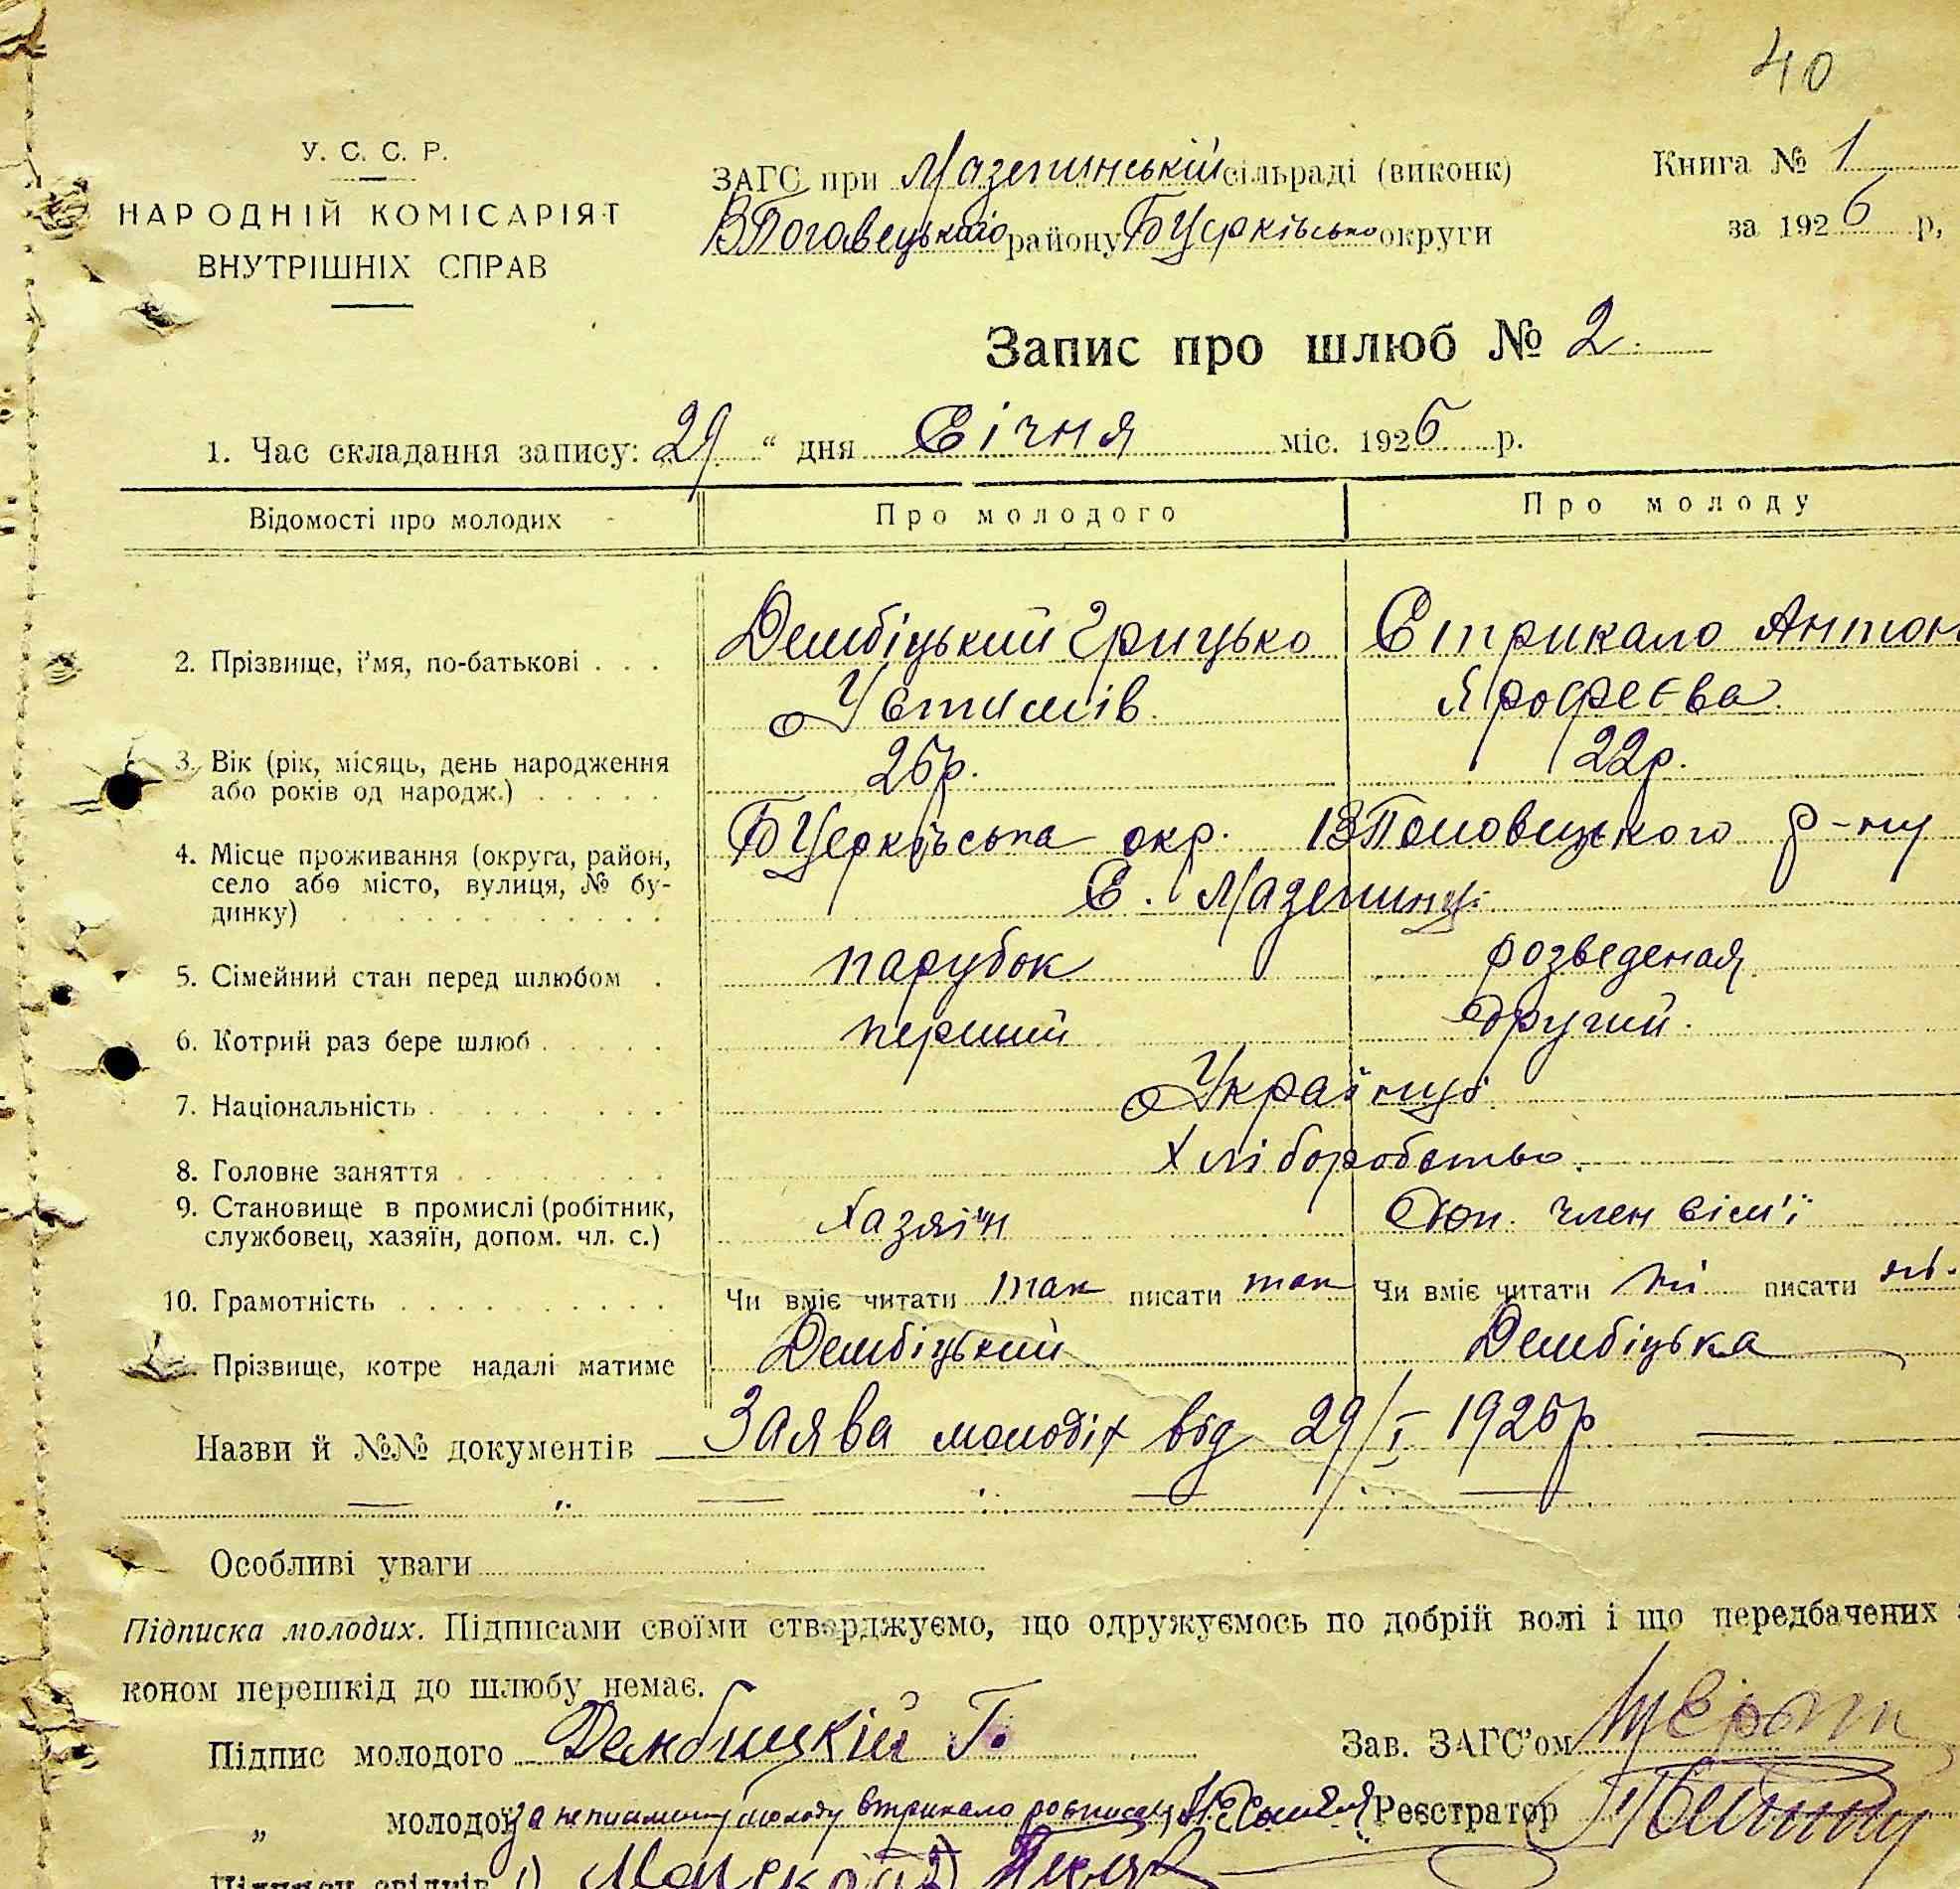 40
У. С. С. Р.
НАРОДНІЙ КОМІСАРІЯТ
ВНУТРІШНІХ СПРАВ
ЗАГС при Мазепинській сільраді (виконк)
ВПоловецького району БЦерківсько округи
Книга № 1
за 1926 р,
Запис про шлюб № 2.
1. Час складання запису: 29 “ дня Січня міс. 1926 р.
Відомості про молодих Про молодого Про молоду
2. Прізвище, і'мя, по-батькові . . . Дембіцький Грицько Стрикало Антон
Устимів. Ярофеєва.
3. Вік (рік, місяць, день народження 26р. 22р.
або років од народж.) . . . . .
4. Місце проживання (округа, район, БЦерківська окр. ВПоловецького р-ну
село або місто, вулиця, № бу- С. Мазепинці
динку) . . . . . . . . . . .
5. Сімейний стан перед шлюбом . парубок розведеная.
6. Котрий раз бере шлюб . . . . . перший другий.
7. Національність . . . . . . . Українці
8. Головне заняття . . . . . . . Хліборобство.
9. Становище в промислі (робітник, Хазяїн Доп. член сім'ї
службовец, хазяїн, допом. чл. с.)
10. Грамотність . . . . . . . . . . Чи вміє читати так писати так Чи вміє читати ні писати ні.
Прізвище, котре надалі матиме Дембіцький Дембіцька
Назви й №№ документів Заява молодіх від 29/I 1926р
Особливі уваги
Підписка молодих. Підписами своїми стверджуємо, що одружуємось по добрій волі і що передбачених
коном перешкід до шлюбу немає.
Підпис молодого Дембицкій Г. Зав. ЗАГС'ом
„ молодої за неписменну молоду Стрикало росписався Реєстратор
Підписи свідків 1) 2)